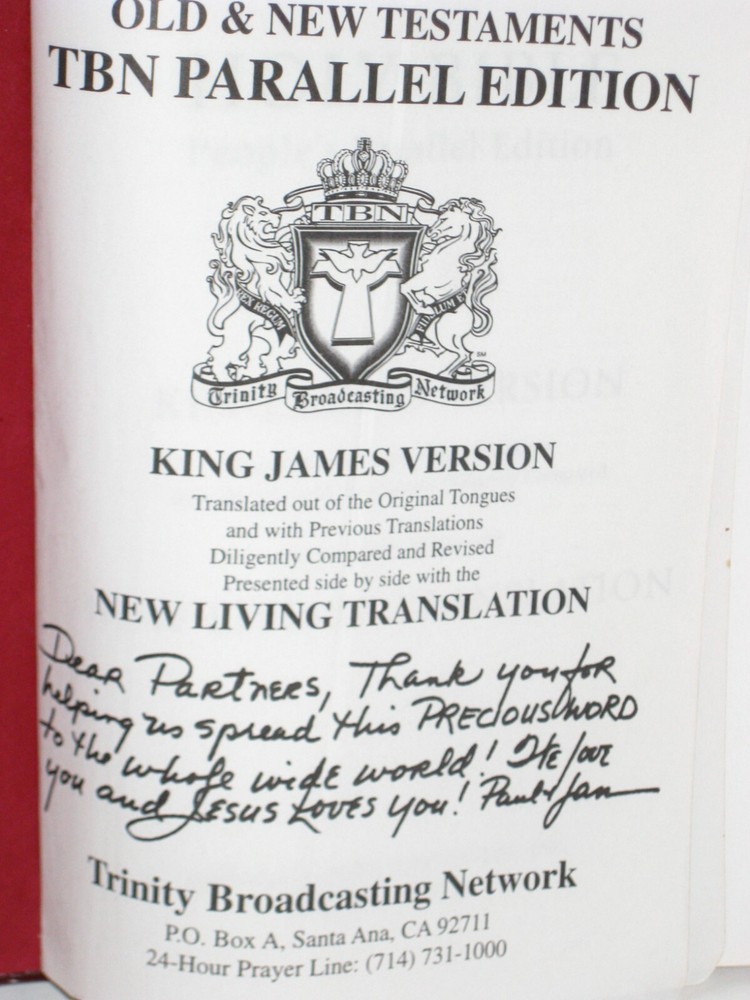 OLD & NEW TESTAMENTS
TBN PARALLEL EDITION
TBN
REX REGUM
Trinity Broadcasting Network
SM
KING JAMES VERSION
Translated out of the Original Tongues
and with Previous Translations
Diligently Compared and Revised
Presented side by side with the
NEW LIVING TRANSLATION
Dear Partners, Thank you for
helping us spread this PRECIOUS WORD
to the whole wide world! We love
you and Jesus Loves you! Paul & Jan
Trinity Broadcasting Network
P.O. Box A, Santa Ana, CA 92711
24-Hour Prayer Line: (714) 731-1000